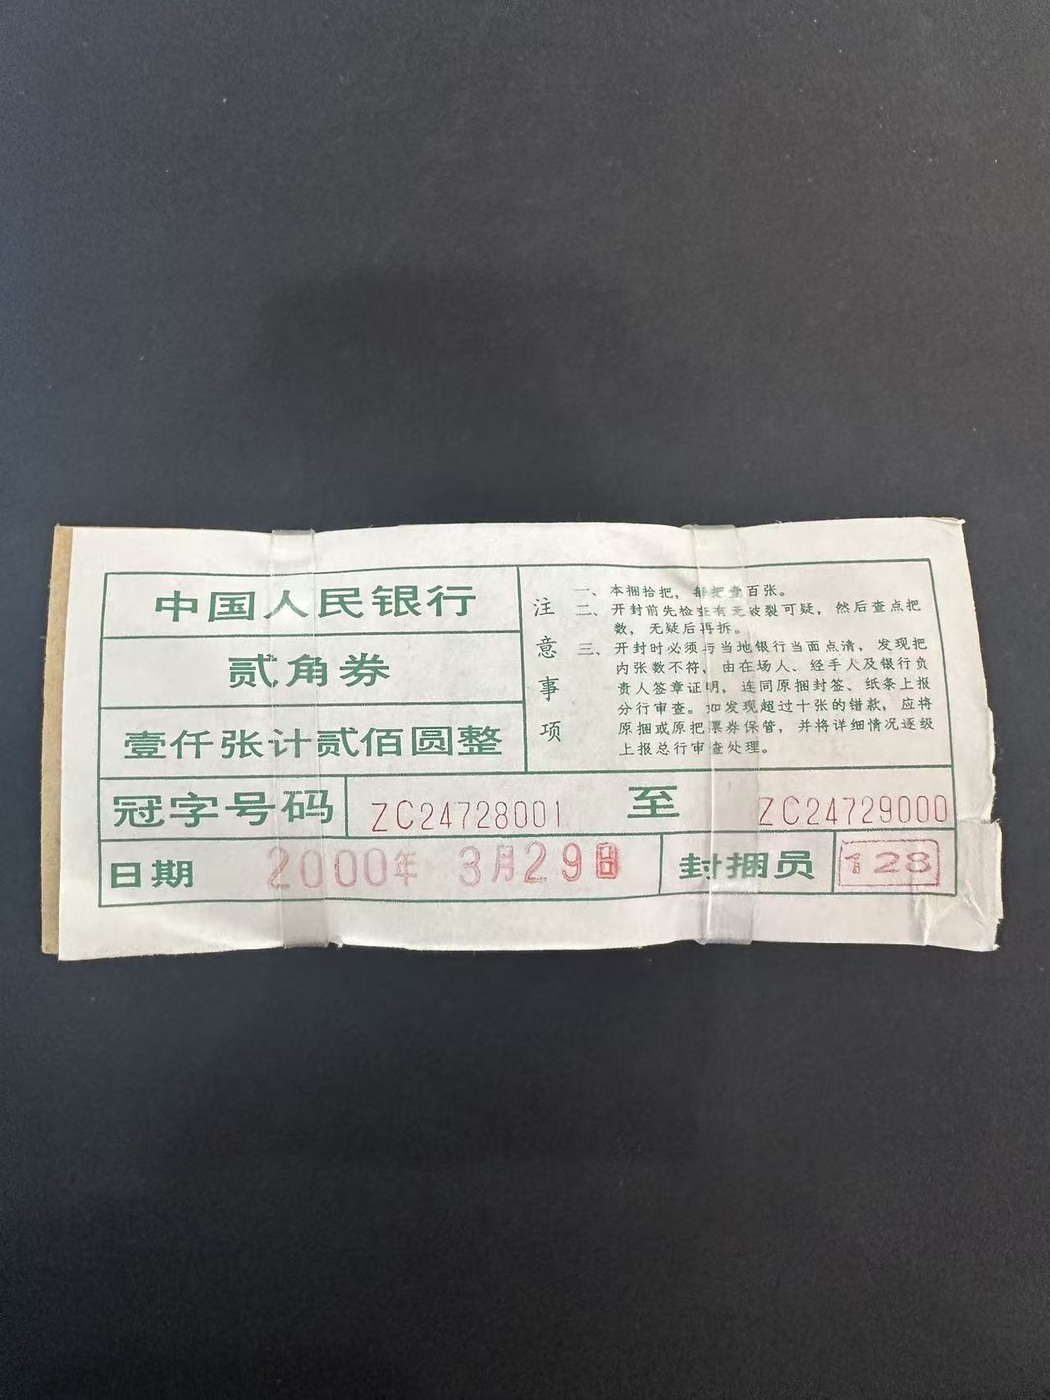 中国人民银行
贰角券
壹仟张计贰佰圆整
注意事项
一、本捆拾把，每把壹百张。
二、开封前先检查有无破裂可疑，然后查点把
数，无疑后再拆。
三、开封时必须与当地银行当面点清，发现把
内张数不符，由在场人、经手人及银行负
责人签章证明，连同原捆封签、纸条上报
分行审查。如发现超过十张的错款，应将
原捆或原把票券保管，并将详细情况逐级
上报总行审查处理。
冠字号码 ZC24728001 至 ZC24729000
日期 2000年 3月29日 封捆员 128